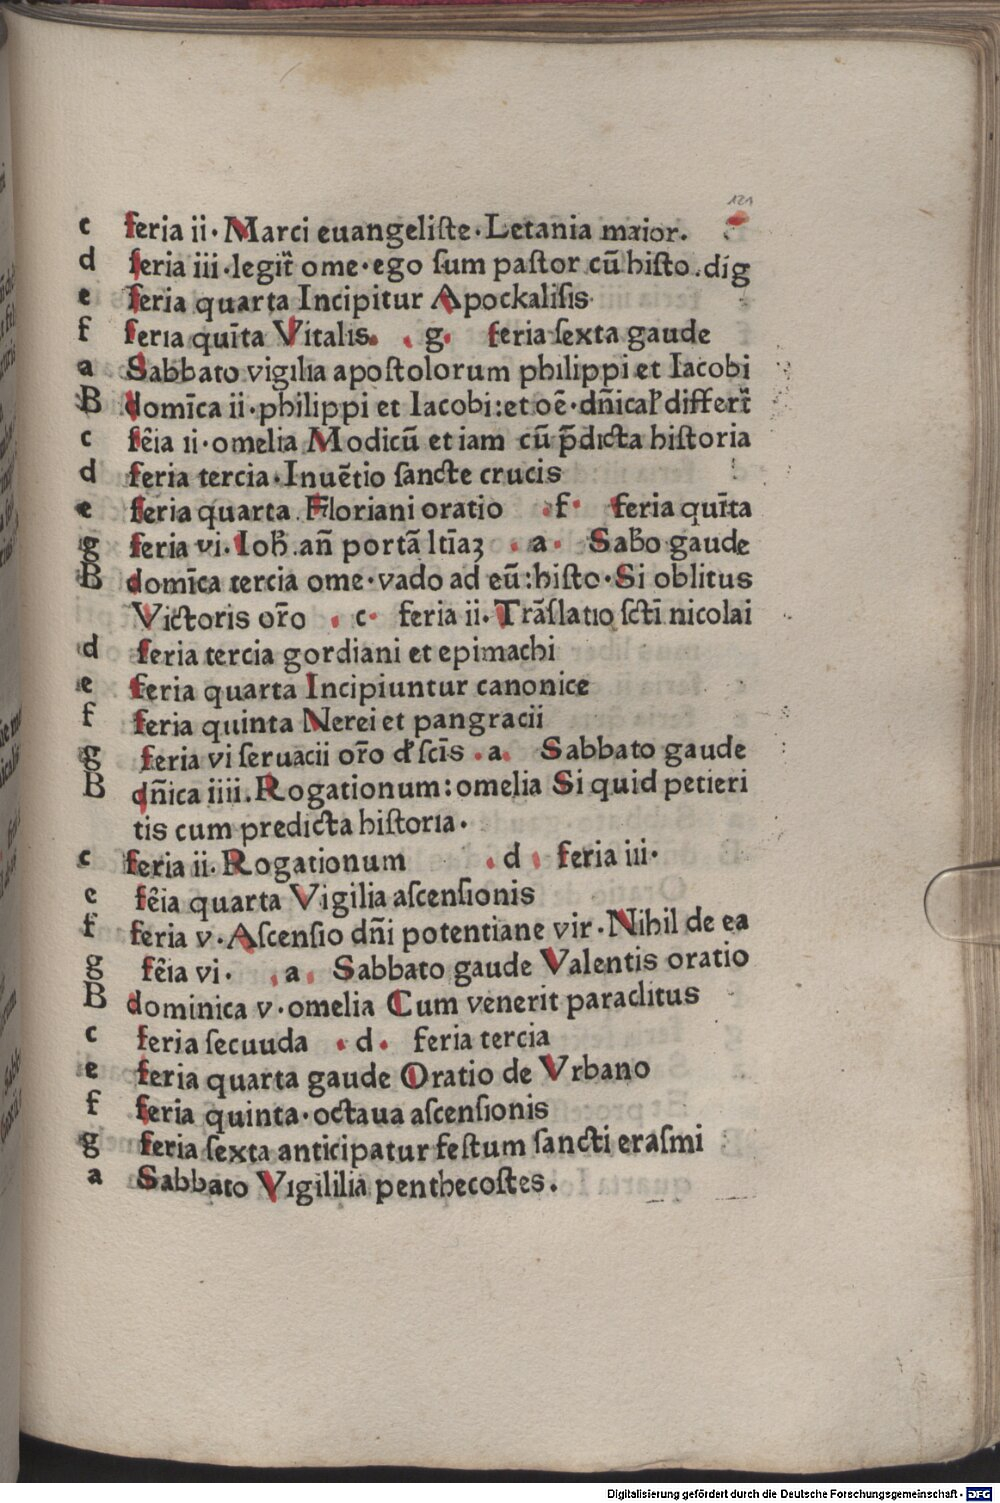 121
c feria ii· Marci euangeliſte·Letania maior.
d feria iii·legit᷑ ome·ego ſum paſtor cū hiſto.dig
e feria quarta Incipitur Apockaliſis
f feria quīta Vitalis. . g. feria ſexta gaude
a Sabbato vigilia apoſtolorum philippi et Iacobi
B domīca ii·philippi et Iacobi:et oē·dn̄ical᷑ differt᷑
c fēia ii·omelia Modicū et iam cū p̄dicta hiſtoria
d feria tercia·Inuētio ſancte crucis
e feria quarta.Floriani oratio .f· feria quīta
g feria vi.Ioh̄.an̄ portā ltīaꝫ . a· Sab̄o gaude
B domīca tercia ome·vado ad eū:hiſto·Si oblitus
Victoris or̄o . c· feria ii.Trāſlatio ſctī nicolai
d feria tercia gordiani et epimachi
e feria quarta Incipiuntur canonice
f feria quinta Nerei et pangracii
g feria vi ſeruacii or̄o d᷑ ſcīs .a. Sabbato gaude
B dn̄ica iiii.Rogationum:omelia Si quid petieri
tis cum predicta hiſtoria.
c feria ii.Rogationum .d. feria iii·
e fēia quarta Vigilia aſcenſionis
f feria v·Aſcenſio dn̄i potentiane vir·Nihil de ea
g fēia vi· .a. Sabbato gaude Valentis oratio
B dominica v·omelia Cum venerit paraclitus
c feria ſecuuda . d. feria tercia
e feria quarta gaude Oratio de Vrbano
f feria quinta·octaua aſcenſionis
g feria ſexta anticipatur feſtum ſancti eraſmi
a Sabbato Vigililia penthecoſtes.
Digitalisierung gefördert durch die Deutsche Forschungsgemeinschaft - DFG